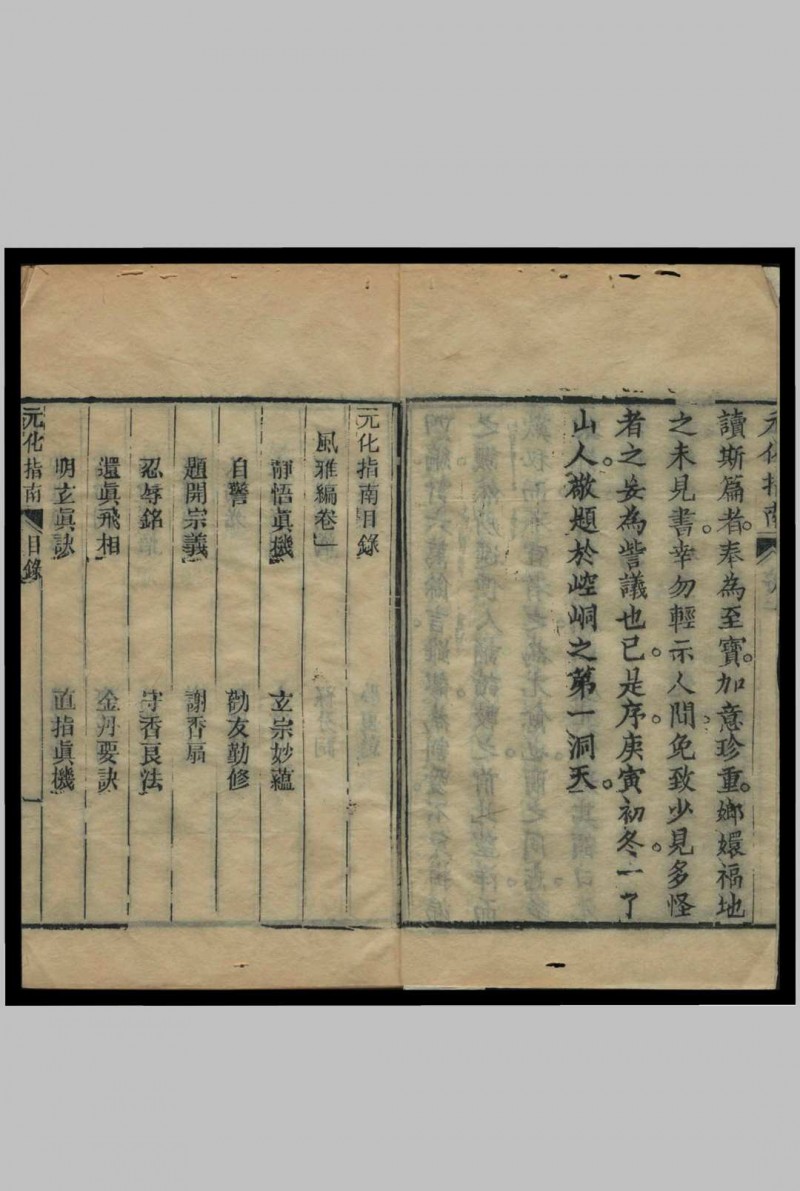 元化指南
讀斯篇者。奉為至寶。加意珍重。嫏嬛福地
之未見書。幸勿輕示人間。免致少見多怪
者之妄為訾議也已。是序。庚寅初冬。一了
山人。敬題於崆峒之第一洞天。
元化指南目錄
風雅編卷一
靜悟眞機 玄宗妙蘊
自警 勸友勤修
題開宗義 謝香扇
忍辱銘 守香良法
還眞飛相 金丹要訣
明玄眞訣 直指眞機
元化指南 目錄 一